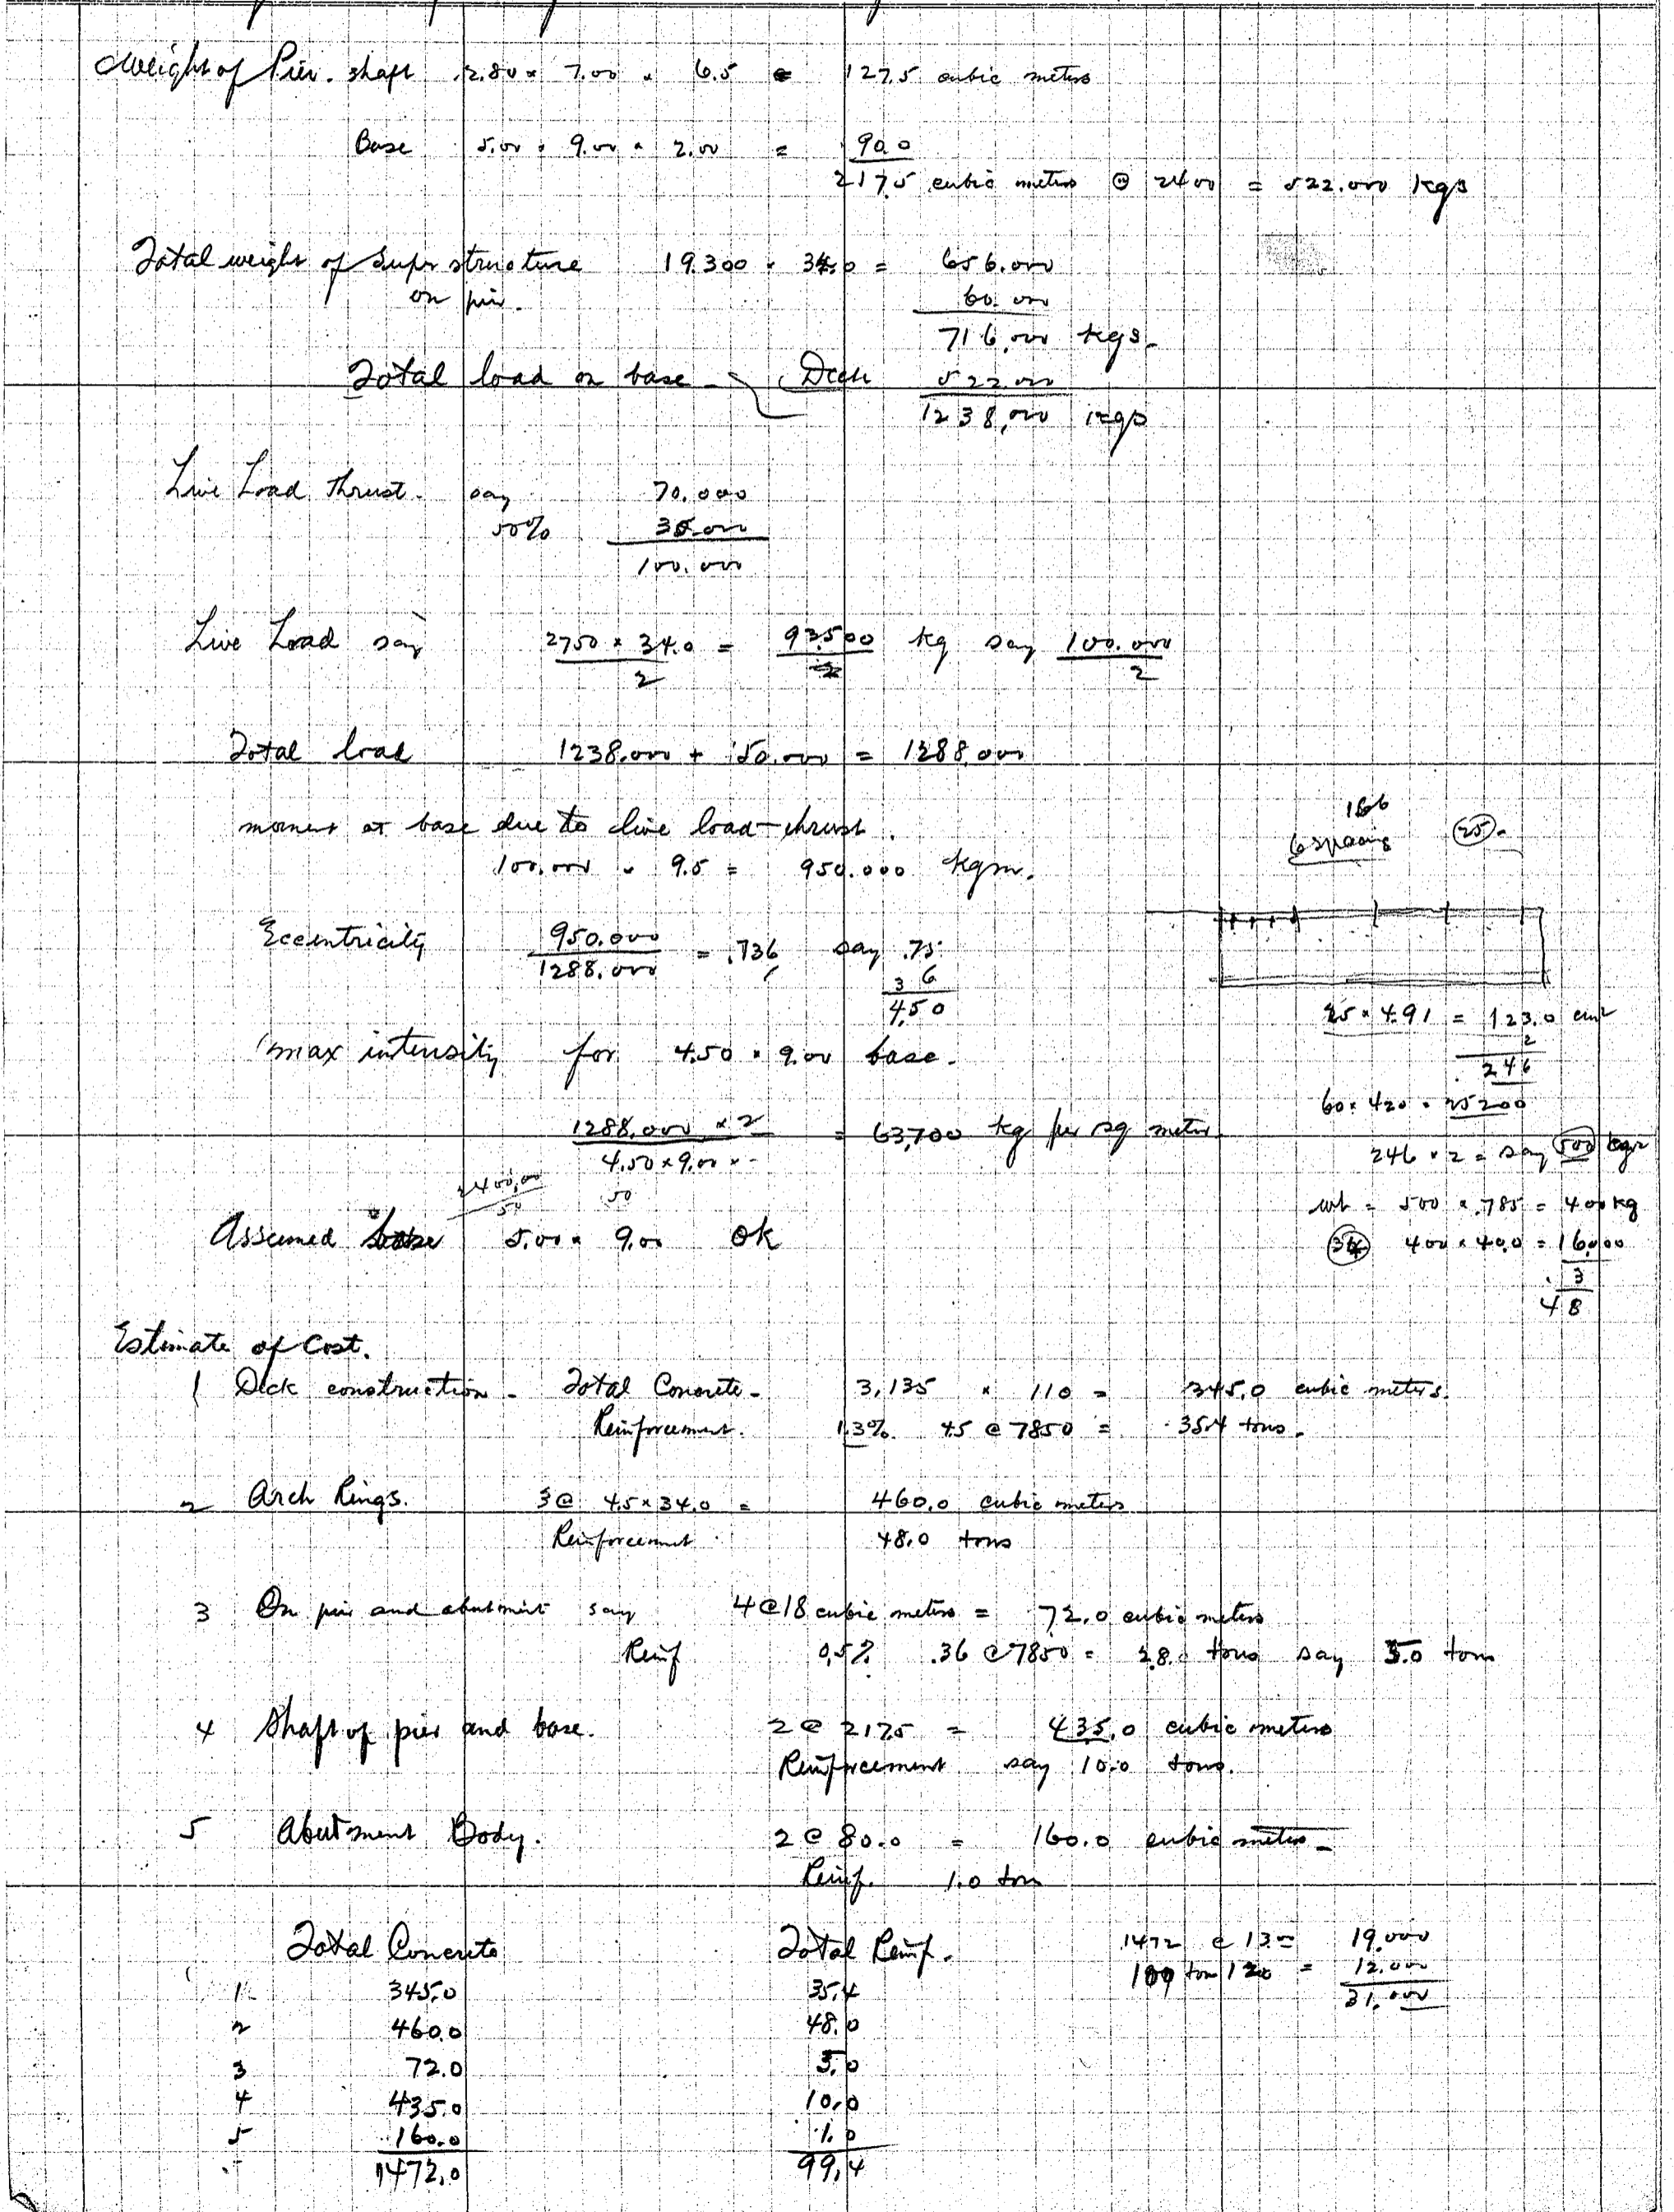 Weight of Pier. shaft 2.80 × 7.00 × 6.5 = 127.5 cubic meters
Base 5.00 × 9.00 × 2.00 = 90.0
217.5 cubic meters @ 2400 = 522.000 kgs
Total weight of Super structure 19.300 × 34.0 = 656.000
on pier. 60.000
716,000 kgs.
Total load on base - Dead 522.000
1238,000 kgs
Live Load Thrust. say 70.000
50% 35.000
100.000
Live Load say 2750 × 34.0 / 2 = 93500 / 2 kg say 100.000 / 2
Total load 1238.000 + 50.000 = 1288.000
moment at base due to live load thrust.
100.000 × 9.5 = 950.000 kgm.
Eccentricity 950.000 / 1288.000 = .736 say .75
3 6
4.50
max intensity for 4.50 × 9.00 base.
1288.000 × 2 / 4.50 × 9.00 × = 63,700 kg per sq meter
50
2400,00 / 50
Assumed base 5.00 × 9.00 OK
166
6 spacing (25).
25 × 4.91 = 123.0 cm²
2
246
60 × 420 = 25200
246 × 2 = say 500 kgs
wt = 500 × .785 = 400 kg
(34) 400 × 40.0 = 16,000
3
48
Estimate of Cost.
1 Deck construction - Total Concrete - 3,135 × 110 = 345.0 cubic meters.
Reinforcement. 1.3% 4.5 @ 7850 = 35.4 tons.
2 Arch Rings. 3 @ 4.5 × 34.0 = 460.0 cubic meters
Reinforcement 48.0 tons
3 On pier and abutment say 4 @ 18 cubic meters = 72.0 cubic meters
Reinf 0.5% .36 @ 7850 = 2.8 tons say 5.0 tons
4 Shaft of pier and base. 2 @ 217.5 = 435.0 cubic meters
Reinforcement say 10.0 tons.
5 Abutment Body. 2 @ 80.0 = 160.0 cubic meters
Reinf. 1.0 ton
Total Concrete Total Reinf. 1472 @ 13 = 19,000
100 ton 120 = 12.000
31,000
1 345.0 35.4
2 460.0 48.0
3 72.0 5.0
4 435.0 10.0
5 160.0 1.0
1472.0 99.4